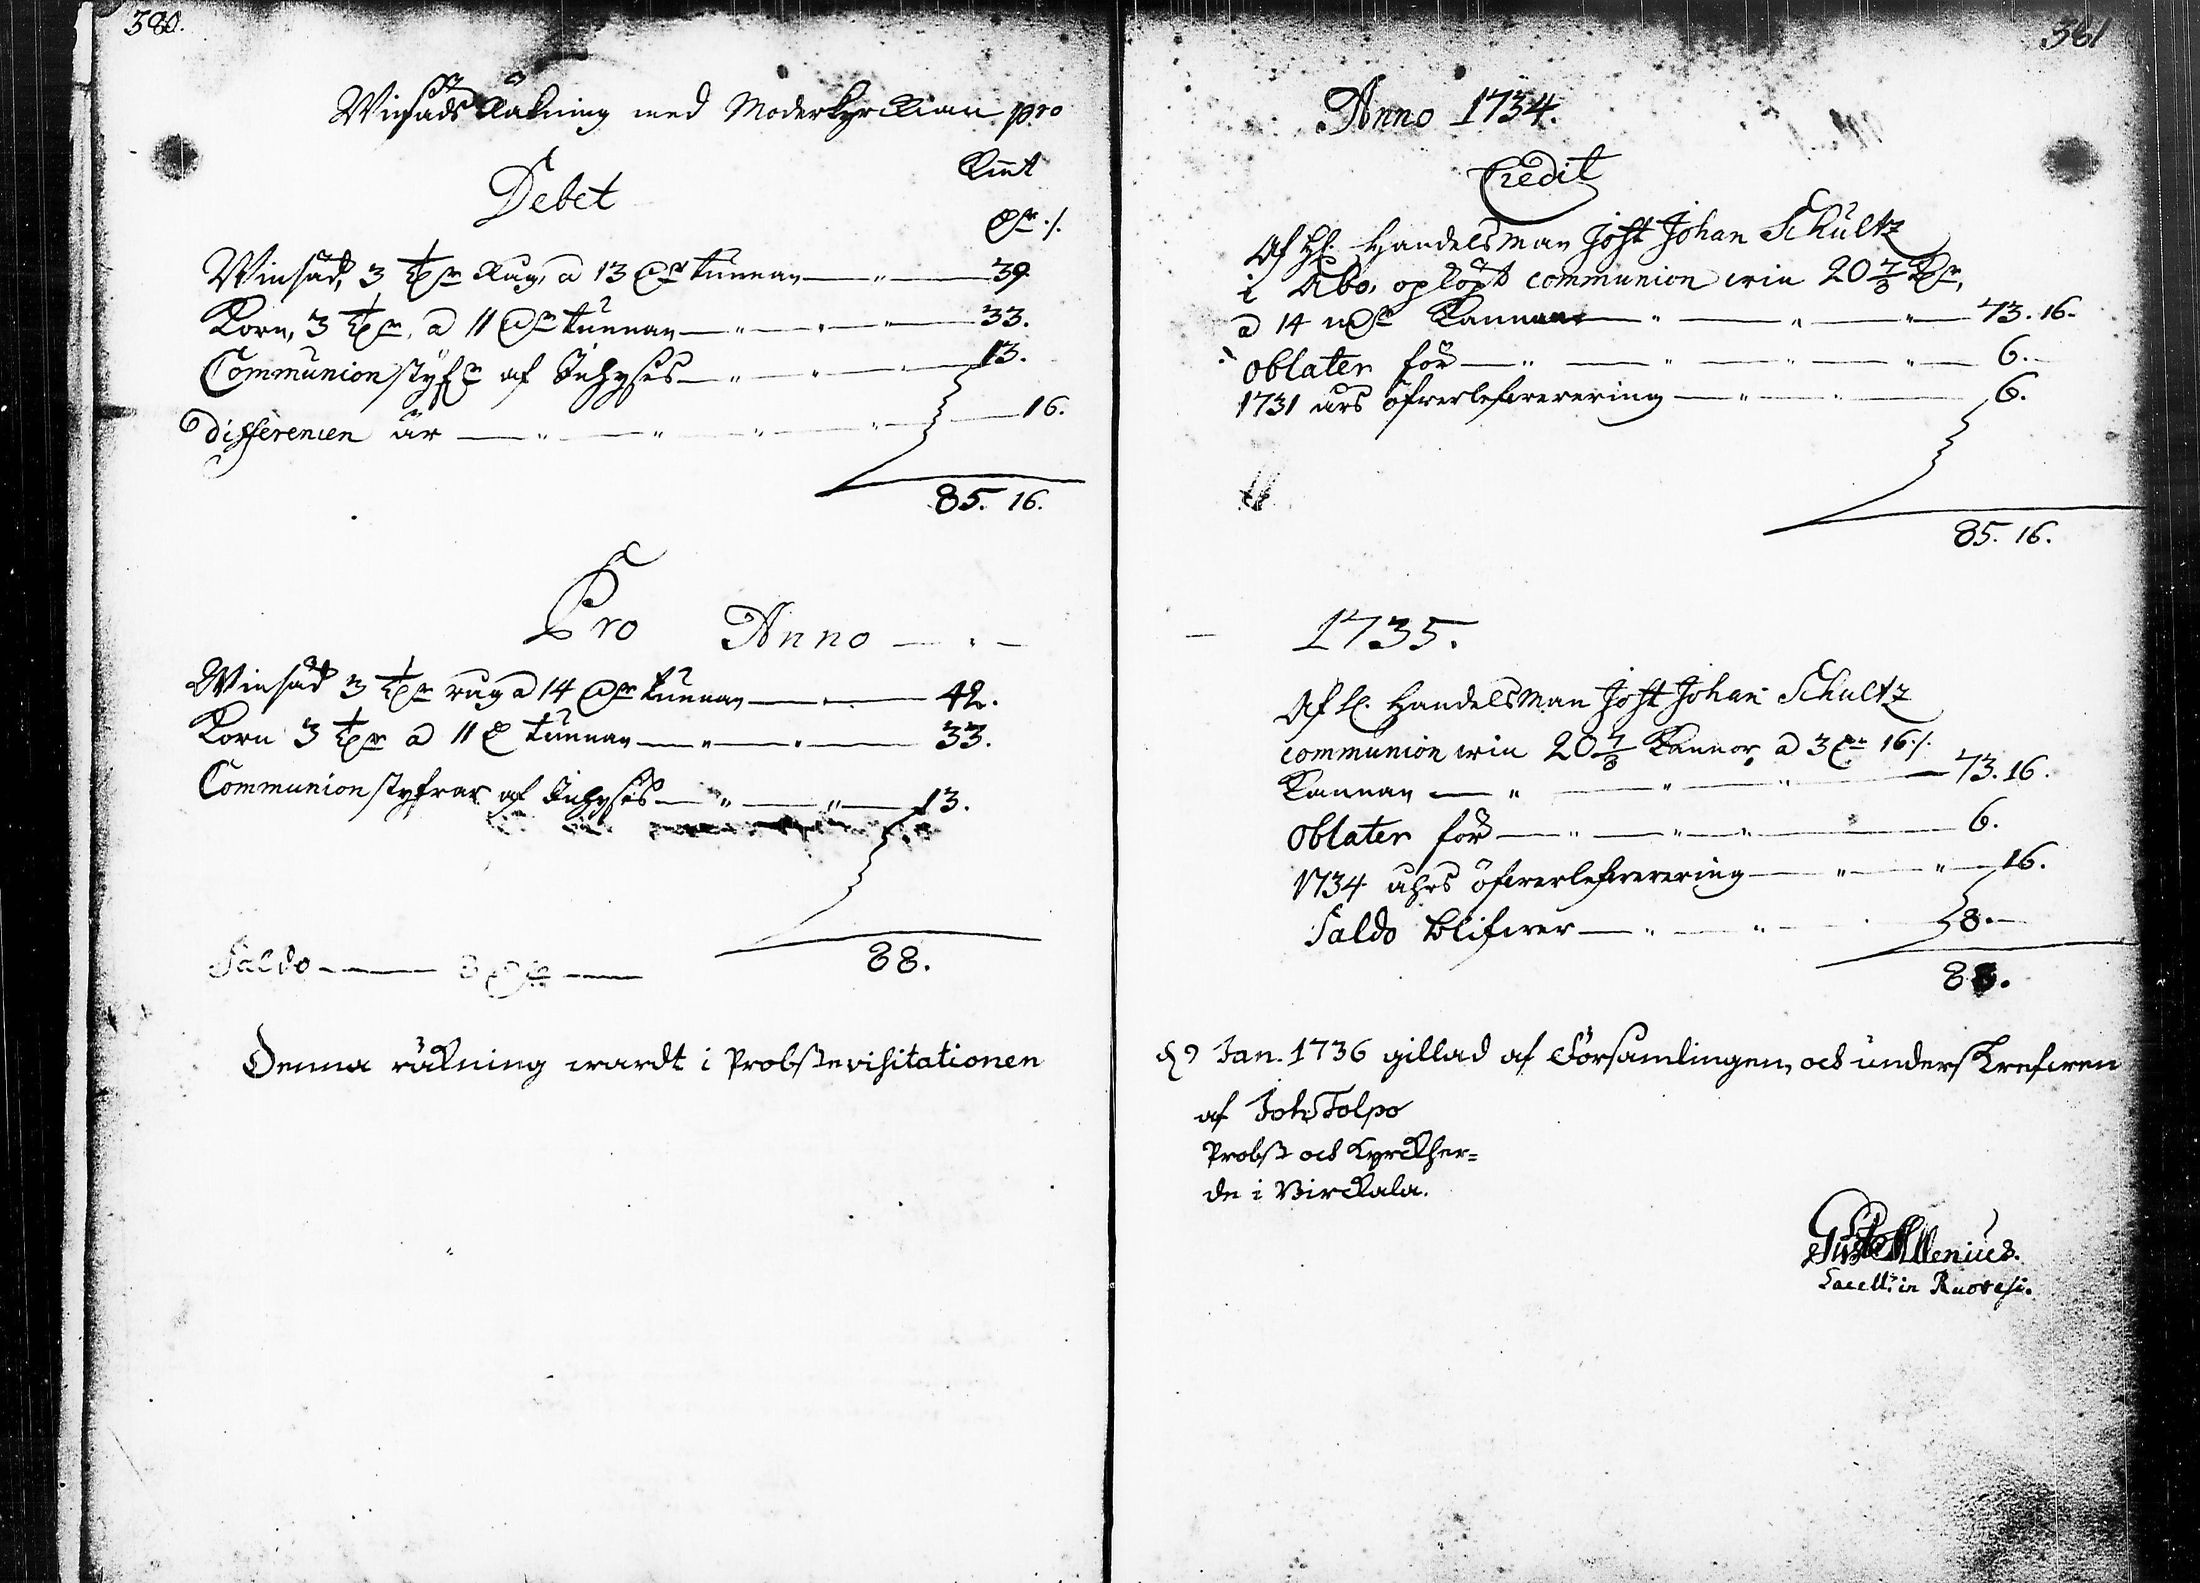 380.
Winsäds Räkning med Moderkyrckian pro
Debet
Kmt
Dr ./.
Winsäd, 3 T:r Rug, a 13 Dr tunnan — " — 39
Korn, 3 T:r, a 11 Dr tunnan — " — " — " — 33.
Communion styf:r af — " — " — 13.
differencen är — " — " — " — " — 16.
85. 16.
Pro Anno — " —
Winsäd 3 T:r rug a 14 Dr tunnan — " — 42.
Korn 3 T:r a 11 D tunnan — " — " — 33.
Communion styfrar af — " — " — 13.
88.
Saldo — 8 Dr —
Denna räkning wardt i Probstevisitationen
381
Anno 1734.
Credit
Af H. Handelsman Jost Johan Schultz
i Åbo, opköpt communion win 20 7/8 K:r,
a 14 Kannan — " — " — " — 73. 16.
oblater för — " — " — " — " — 6.
1731 års öfwerlefwerering — " — " — 6.
85. 16.
— 1735.
Af H. Handelsman Jost Johan Schultz
communion win 20 7/8 Kannor a 3 Dr 16 ./.
Kannan — " — " — " — 73. 16.
Oblater för — " — " — " — 6.
1734 åhrs öfwerlefwerering — " — " — 16.
Saldo blifwer — " — " — 8. —
88.
d. 9 Jan. 1736 gillad af Församlingen, och underskrefwen
af Joh. Tolpo
Probst och Kyrckher=
de i Birckala.
Gust. Allenius.
Sacell: in Ruovesi.